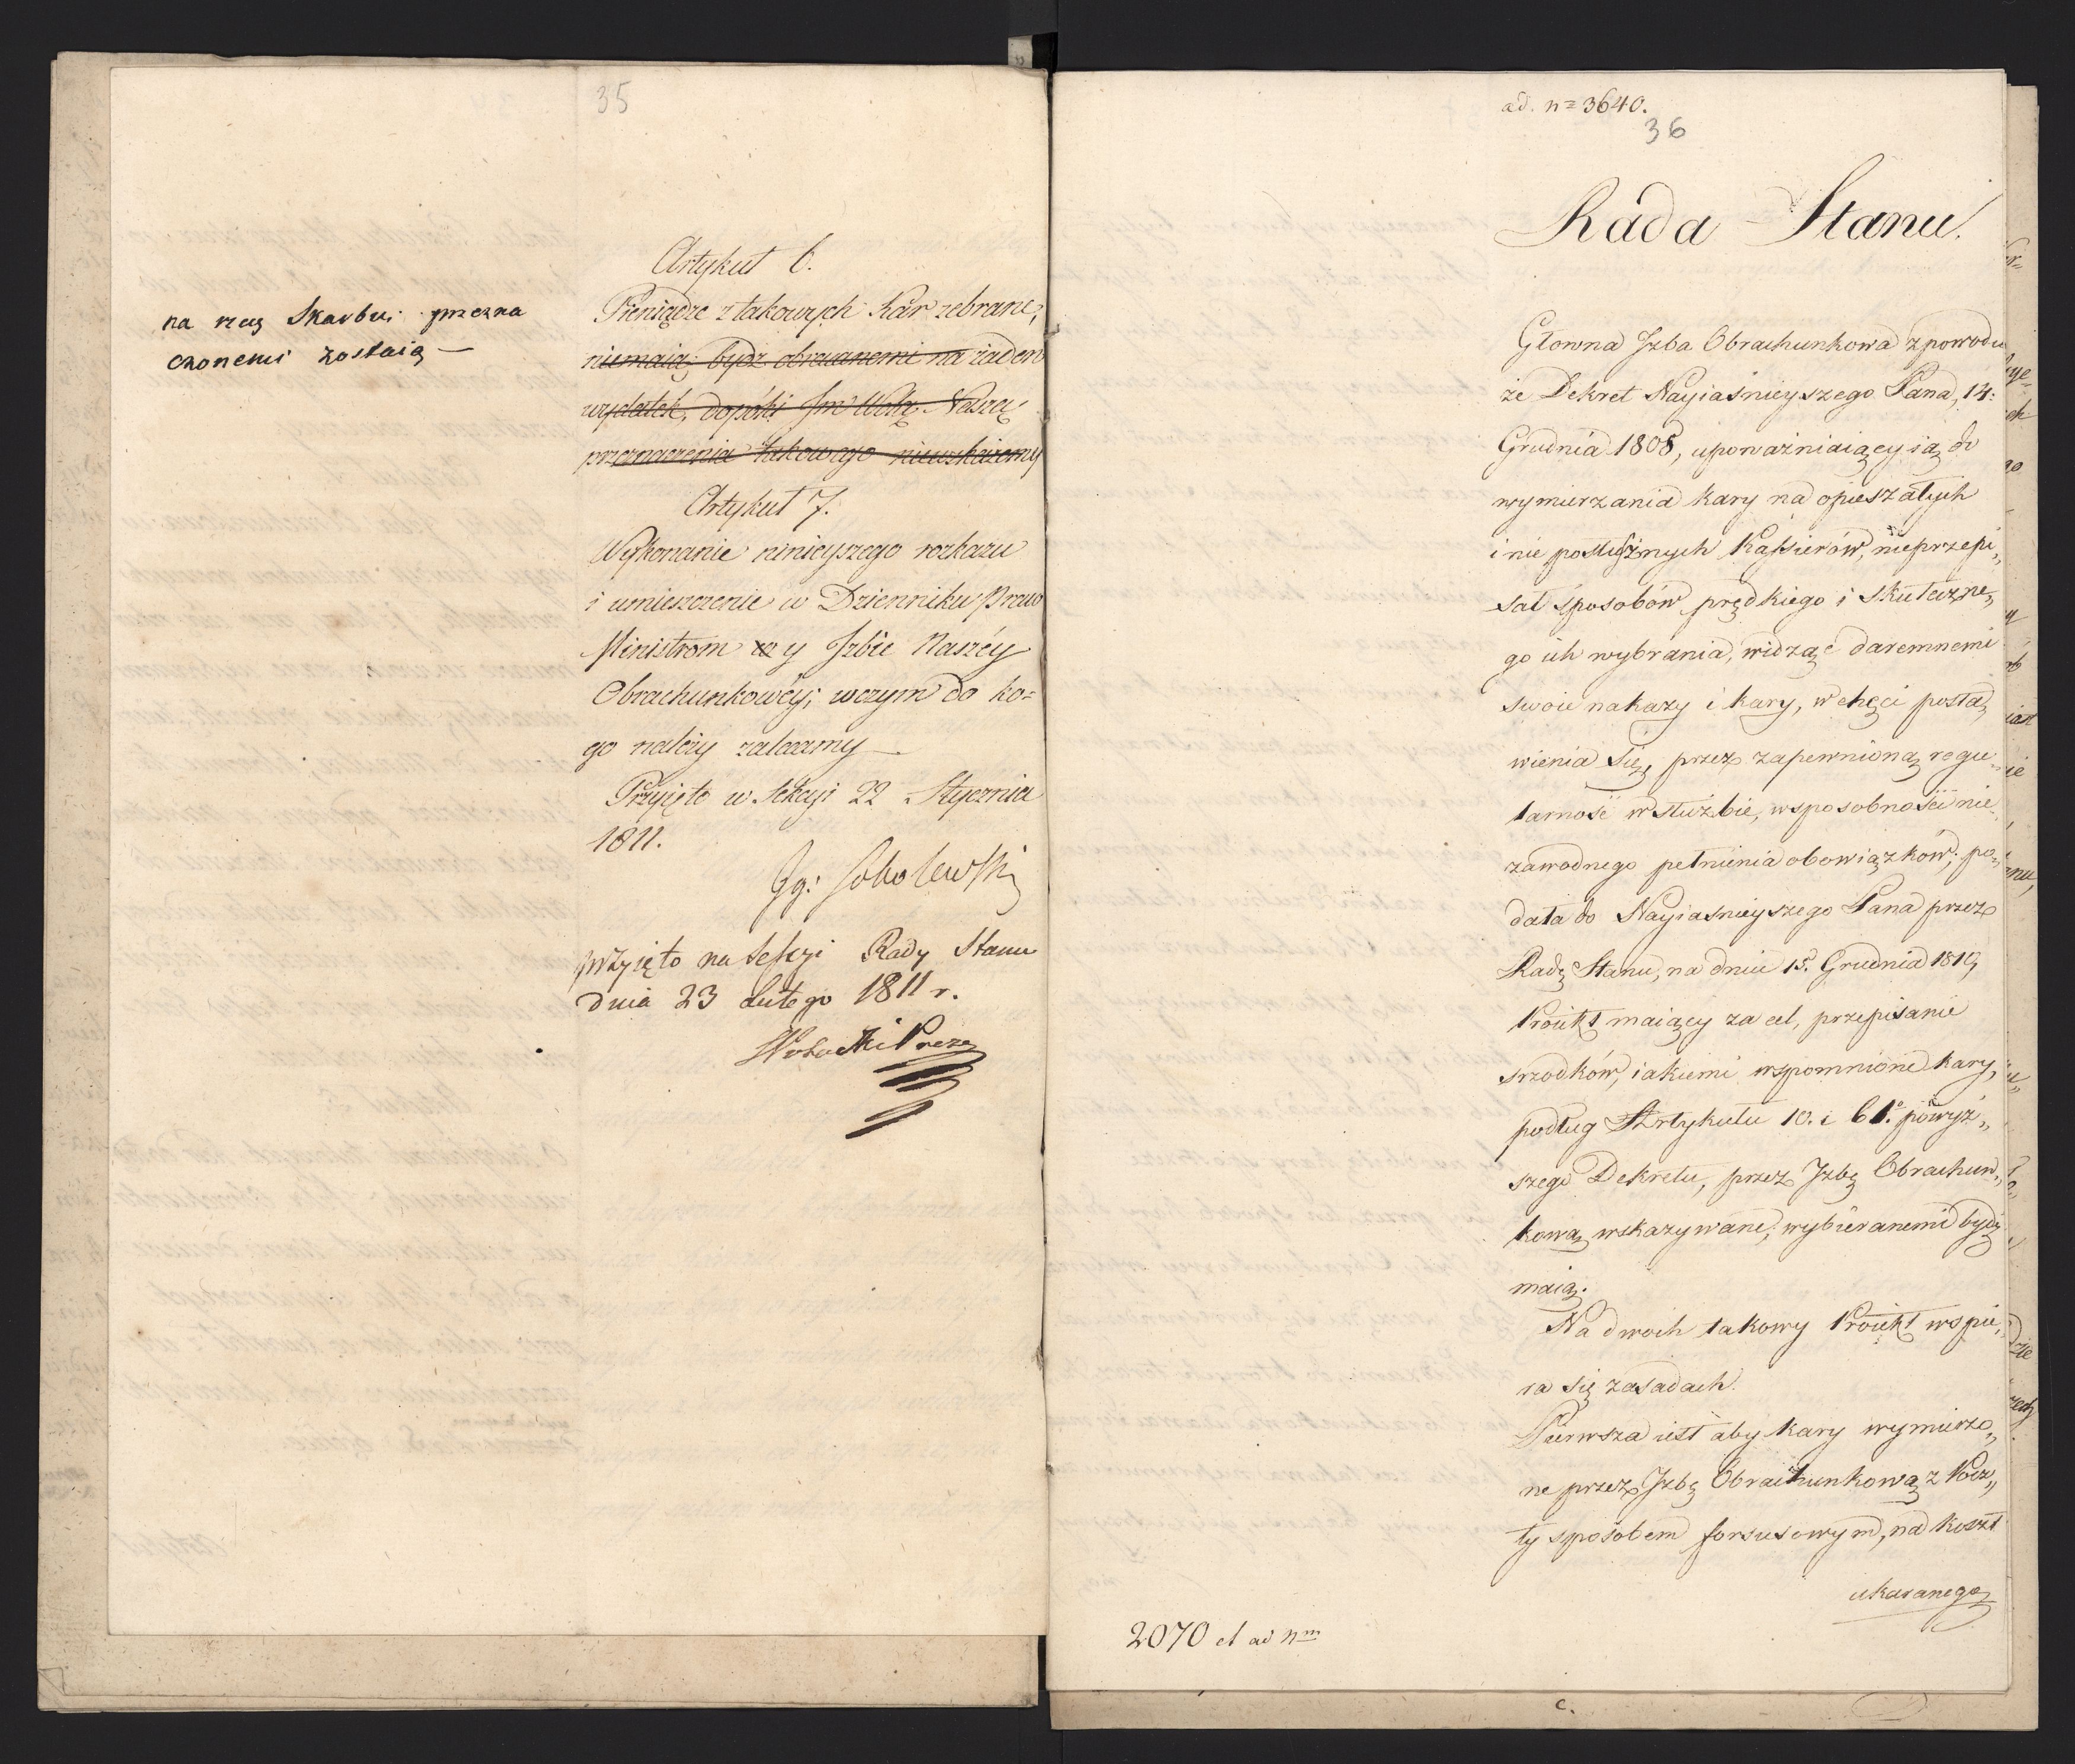 35
na rzecz Skarbu przezna
czonemi zostaią —
Artykuł 6.
Pieniądze z takowych Kar zebrane,
niemaią bydź obracanemi na żaden
wydatek, dopóki Im Wolą Naszą
przeznaczenia takowego niewskażemy
Artykuł 7.
Wykonanie ninieyszego rozkazu
i umieszczenie w Dzienniku Praw
Ministrom y Izbie Naszéy
Obrachunkowéy; wczym do ko=
go należy zalecamy —
Przyięto w Sekcyi 22 Stycznia
1811.
Ig: Sobolewski
przyięto na Sessyi Rady Stanu
dnia 23 Lutego 1811 r.
ad. nº 3640.
36
Rada Stanu.
Głowna Izba Obrachunkowa z powodu
że Dekret Nayiaśnieyszego Pana, 14:
Grudnia 1808, upoważniaiący ią do
wymierzania kary na opieszałych
i nie posłusznych Kassierów, nieprzepi„
sał sposobów prędkiego i skuteczne„
go ich wybrania, widząc daremnemi
swoie nakazy i kary, w chęci posta„
wienia się, przez zapewnioną regu„
larność w służbie, w sposobności nie„
zawodnego pełnienia obowiązków; po„
dała do Nayiaśnieyszego Pana przez
Radę Stanu, na dniu 15. Grudnia 1810,
Proiekt maiący za cel, przepisanie
srzodków, iakiemi wspomnione kary,
podług Artykułu 10. i 61º. powyż„
szego Dekretu, przez Izbę Obrachun„
kową wskazywane, wybieranemi bydź
maią.
Na dwoch takowy Proiekt wspie„
ra się zasadach.
Pierwsza iest aby kary wymierzo„
ne przez Izbę Obrachunkową z Pocz„
ty sposobem forsusowym, na koszt
ukaranego
2070 et ad nm
c.